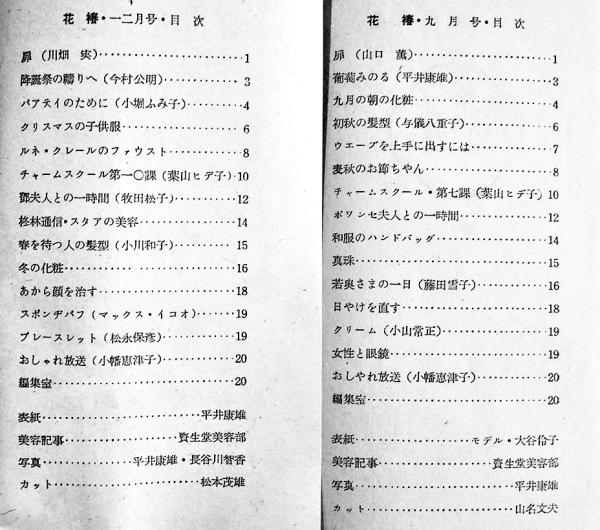 花椿・一二月号・目次
扉（川畑 実）・・・・・・1
降誕祭の贈りへ（今村公明）・・・・・・3
パアテイのために（小堀ふみ子）・・・・・・4
クリスマスの子供服・・・・・・6
ルネ・クレールのファウスト・・・・・・8
チャームスクール第一〇課（葉山ヒデ子）・10
鄧夫人との一時間（牧田松子）・・・・・・12
柊林通信・スタアの美容・・・・・・14
春を待つ人の髪型（小川和子）・・・・・・15
冬の化粧・・・・・・16
あから顔を治す・・・・・・18
スポンヂパフ（マックス・イコオ）・・・・・・19
ブレースレット（松永保彦）・・・・・・19
おしゃれ放送（小幡恵津子）・・・・・・20
編集室・・・・・・20
表紙・・・・・・平井康雄
美容記事・・・・・・資生堂美容部
写真・・・・・・平井康雄・長谷川智香
カット・・・・・・松本茂雄
花椿・九月号・目次
扉（山口 薫）・・・・・・1
葡萄みのる（平井康雄）・・・・・・3
九月の朝の化粧・・・・・・4
初秋の髪型（与儀八重子）・・・・・・6
ウエーブを上手に出すには・・・・・・7
麦秋のお節ちやん・・・・・・8
チャームスクール・第七課（葉山ヒデ子）10
ボワンセ夫人との一時間・・・・・・12
和服のハンドバッグ・・・・・・14
真珠・・・・・・15
若奥さまの一日（藤田雪子）・・・・・・16
日やけを直す・・・・・・18
クリーム（小山常正）・・・・・・19
女性と眼鏡・・・・・・19
おしやれ放送（小幡恵津子）・・・・・・20
編集室・・・・・・20
表紙・・・・・・モデル・大谷伶子
美容記事・・・・・・資生堂美容部
写真・・・・・・平井康雄
カット・・・・・・山名文夫